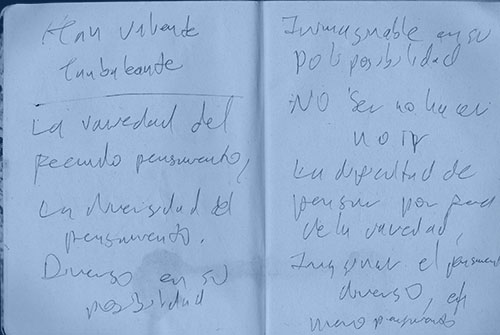 tambaleante
La variedad del
fecundo pensamiento,
La diversidad del
pensamiento.
Diverso en su
posibilidad
Inimaginable en su
poli posibilidad
NO Ser no hacer
no ir
La dificultad de
pensar por fuera
de la variedad,
Imaginar el pensamiento
diverso, es
mero pensamiento